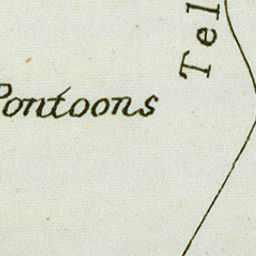 Pontoons
Tel